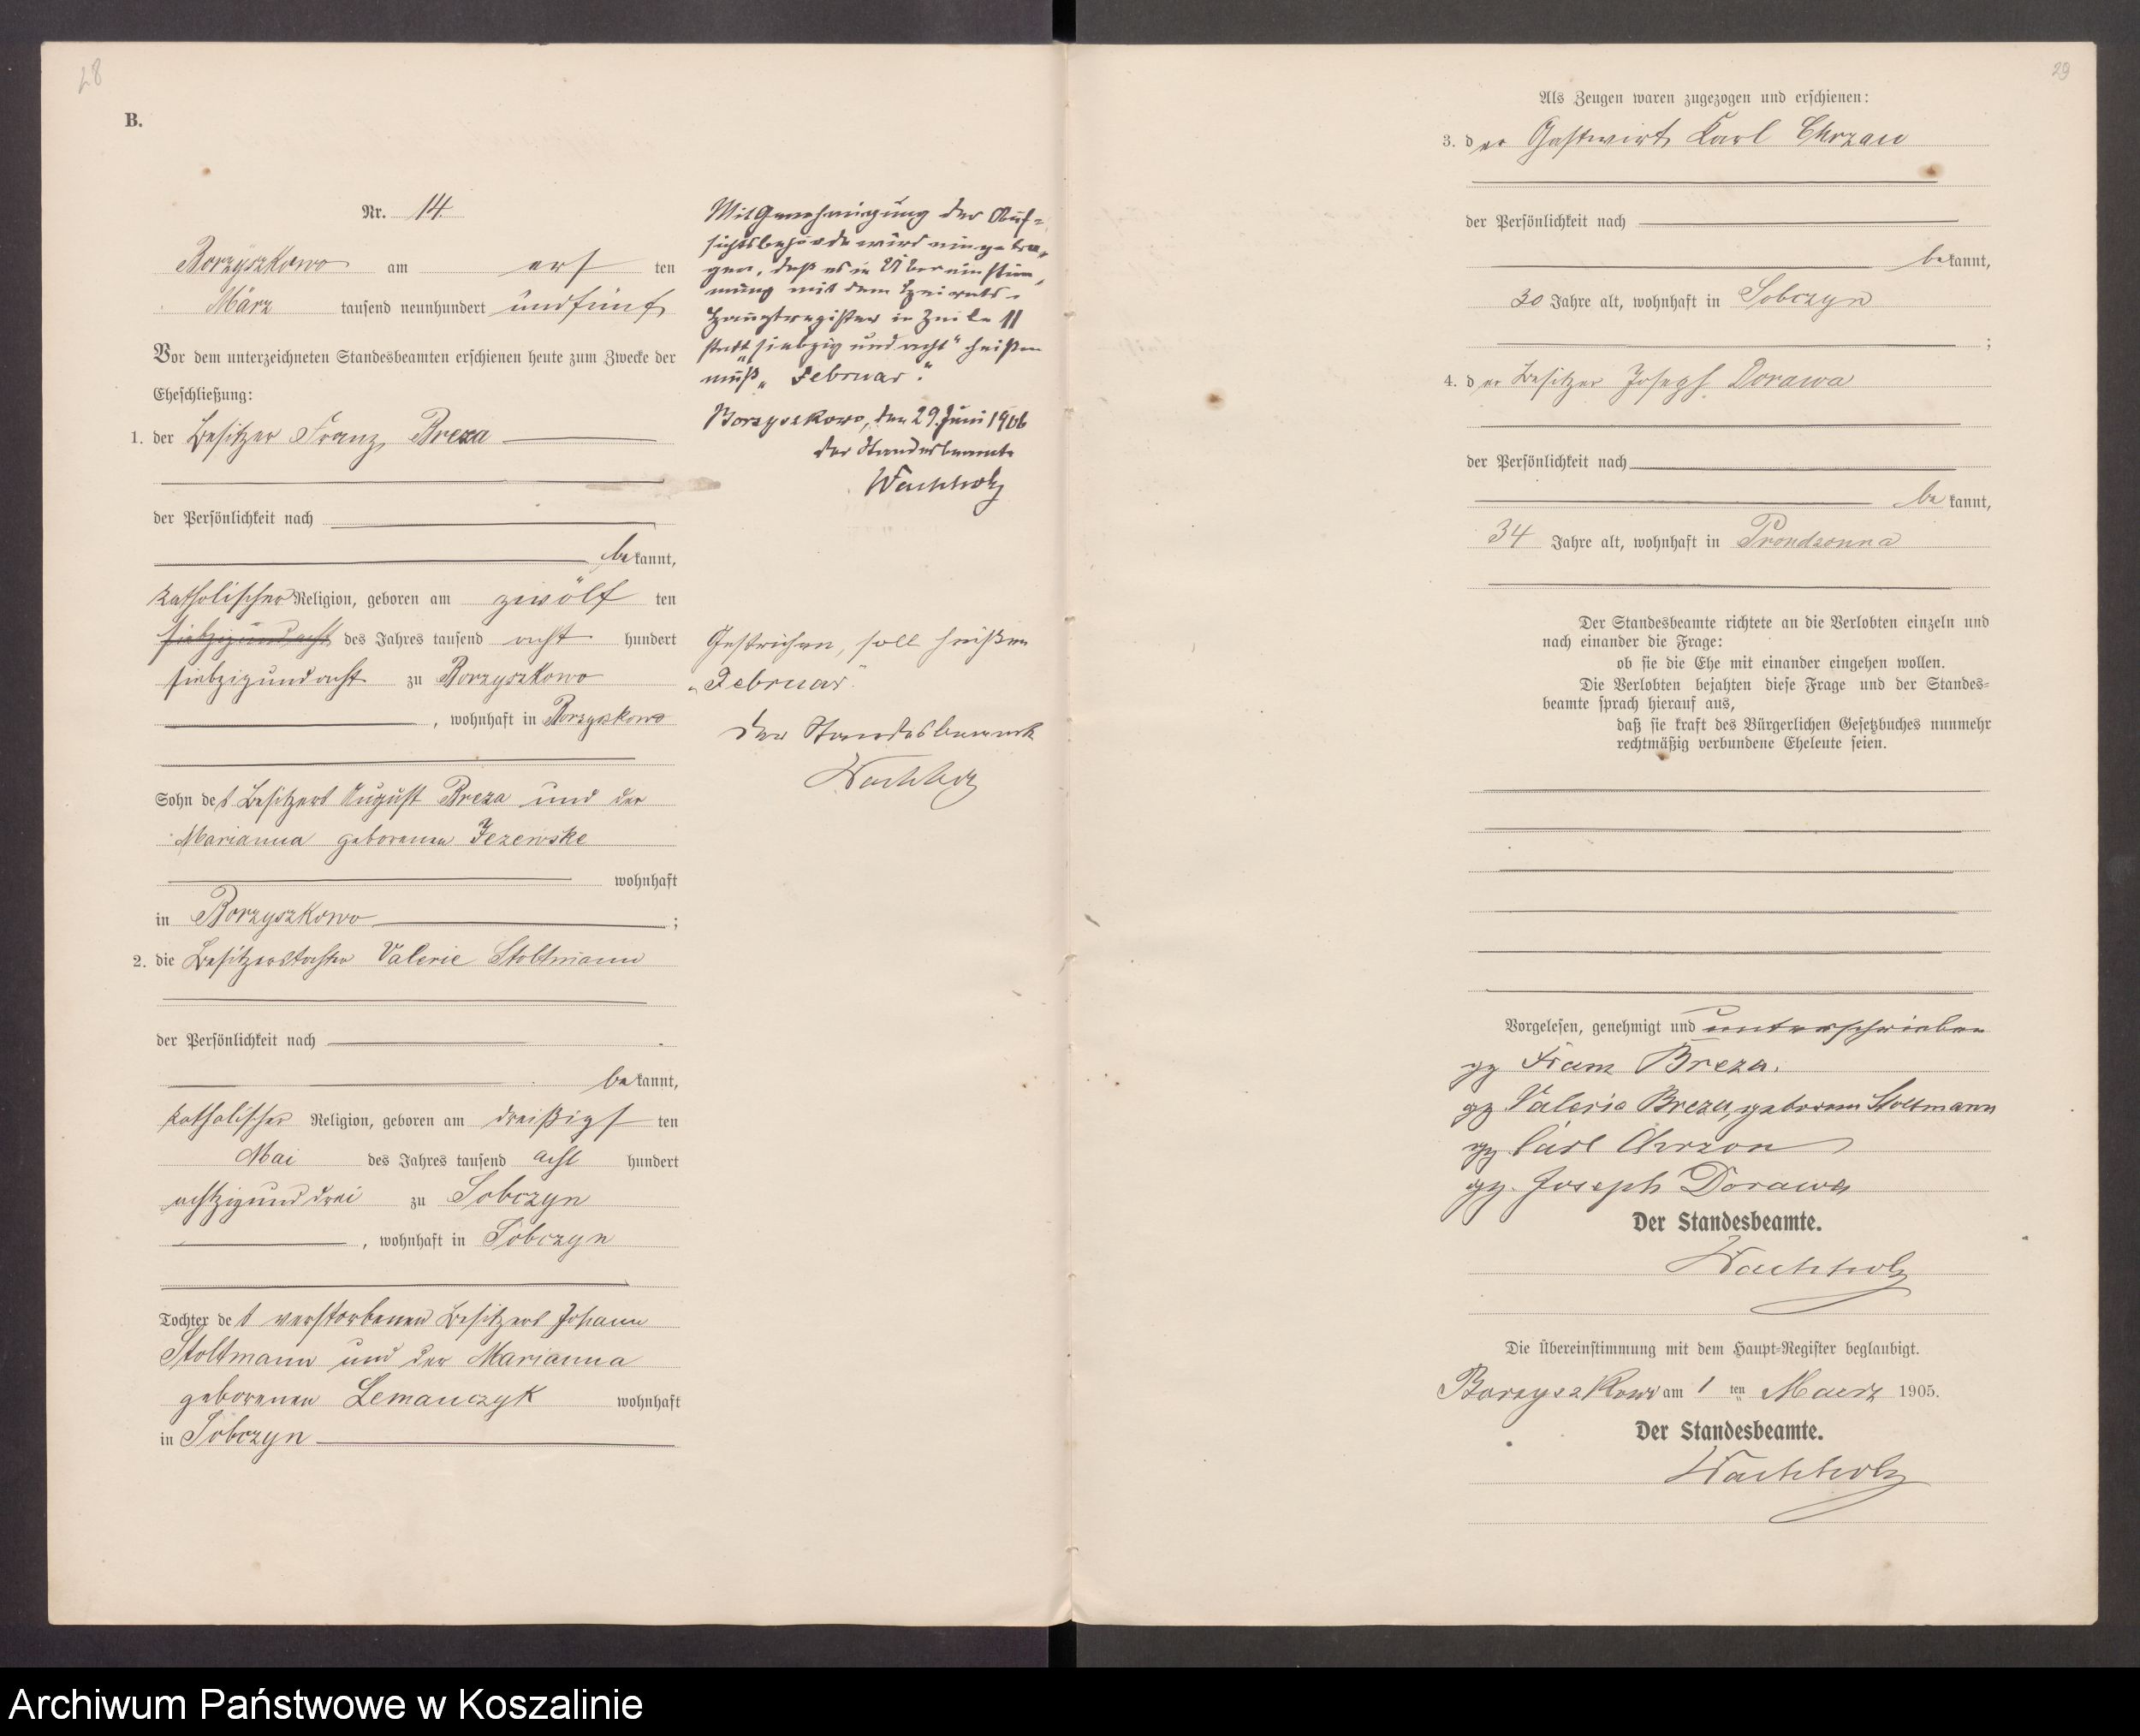 28
B.
Nr. 14
Borzyszkowo am erſten
März tauſend neunhundert und fünf
Vor dem unterzeichneten Standesbeamten erſchienen heute zum Zwecke der
Eheſchließung:
1. der Beſitzer Franz Breza
der Perſönlichkeit nach
bekannt,
katholiſcher Religion, geboren am zwölften
ſiebzigundacht des Jahres tauſend acht hundert
ſiebzigundacht zu Borzyszkowo
, wohnhaft in Borzyskowo
Sohn des Beſitzers Auguſt Breza und der
Marianna geborenen Jezewske
wohnhaft
in Borzyszkowo ;
2. die Beſitzerstochter Valerie Stoltmann
der Perſönlichkeit nach
bekannt,
katholiſcher Religion, geboren am dreißigſten
Mai des Jahres tauſend acht hundert
achtzigunddrei zu Sobczyn
, wohnhaft in Sobczyn
Tochter des verſtorbenen Beſitzers Johann
Stoltmann und der Marianna
geborenen Lemanczyk wohnhaft
in Sobczyn
Mit Genehmigung der Auf-
ſichtsbehörde wird eingetra-
gen, daß es in Übereinſtim-
mung mit dem Heirats-
Hauptregiſter in Zeile 11
ſtatt „ſiebzig und acht“ heißen
muß „Februar“.
Borzyskowo, den 29. Juni 1906
der Standesbeamte
Wachholz
Geſtrichen, ſoll heißen
„Februar“.
Der Standesbeamte
Wachholz
29
Als Zeugen waren zugezogen und erſchienen:
3. der Gaſtwirt Karl Chrzan
der Perſönlichkeit nach
bekannt,
30 Jahre alt, wohnhaft in Sobczyn
;
4. der Beſitzer Joſeph Dorawa
der Perſönlichkeit nach
bekannt,
34 Jahre alt, wohnhaft in Prondzonna
Der Standesbeamte richtete an die Verlobten einzeln und
nach einander die Frage:
ob ſie die Ehe mit einander eingehen wollen.
Die Verlobten bejahten dieſe Frage und der Standes-
beamte ſprach hierauf aus,
daß ſie kraft des Bürgerlichen Geſetzbuches nunmehr
rechtmäßig verbundene Eheleute ſeien.
Vorgeleſen, genehmigt und unterſchrieben
gz Franz Breza.
gz Valeria Breza, geborene Stoltmann
gz Carl Chrzon
gz. Joseph Dorawa
Der Standesbeamte.
Wachholz
Die Übereinſtimmung mit dem Haupt-Regiſter beglaubigt.
Borzyszkowo am 1 ten Maerz 1905.
Der Standesbeamte.
Wachholz
Archiwum Państwowe w Koszalinie